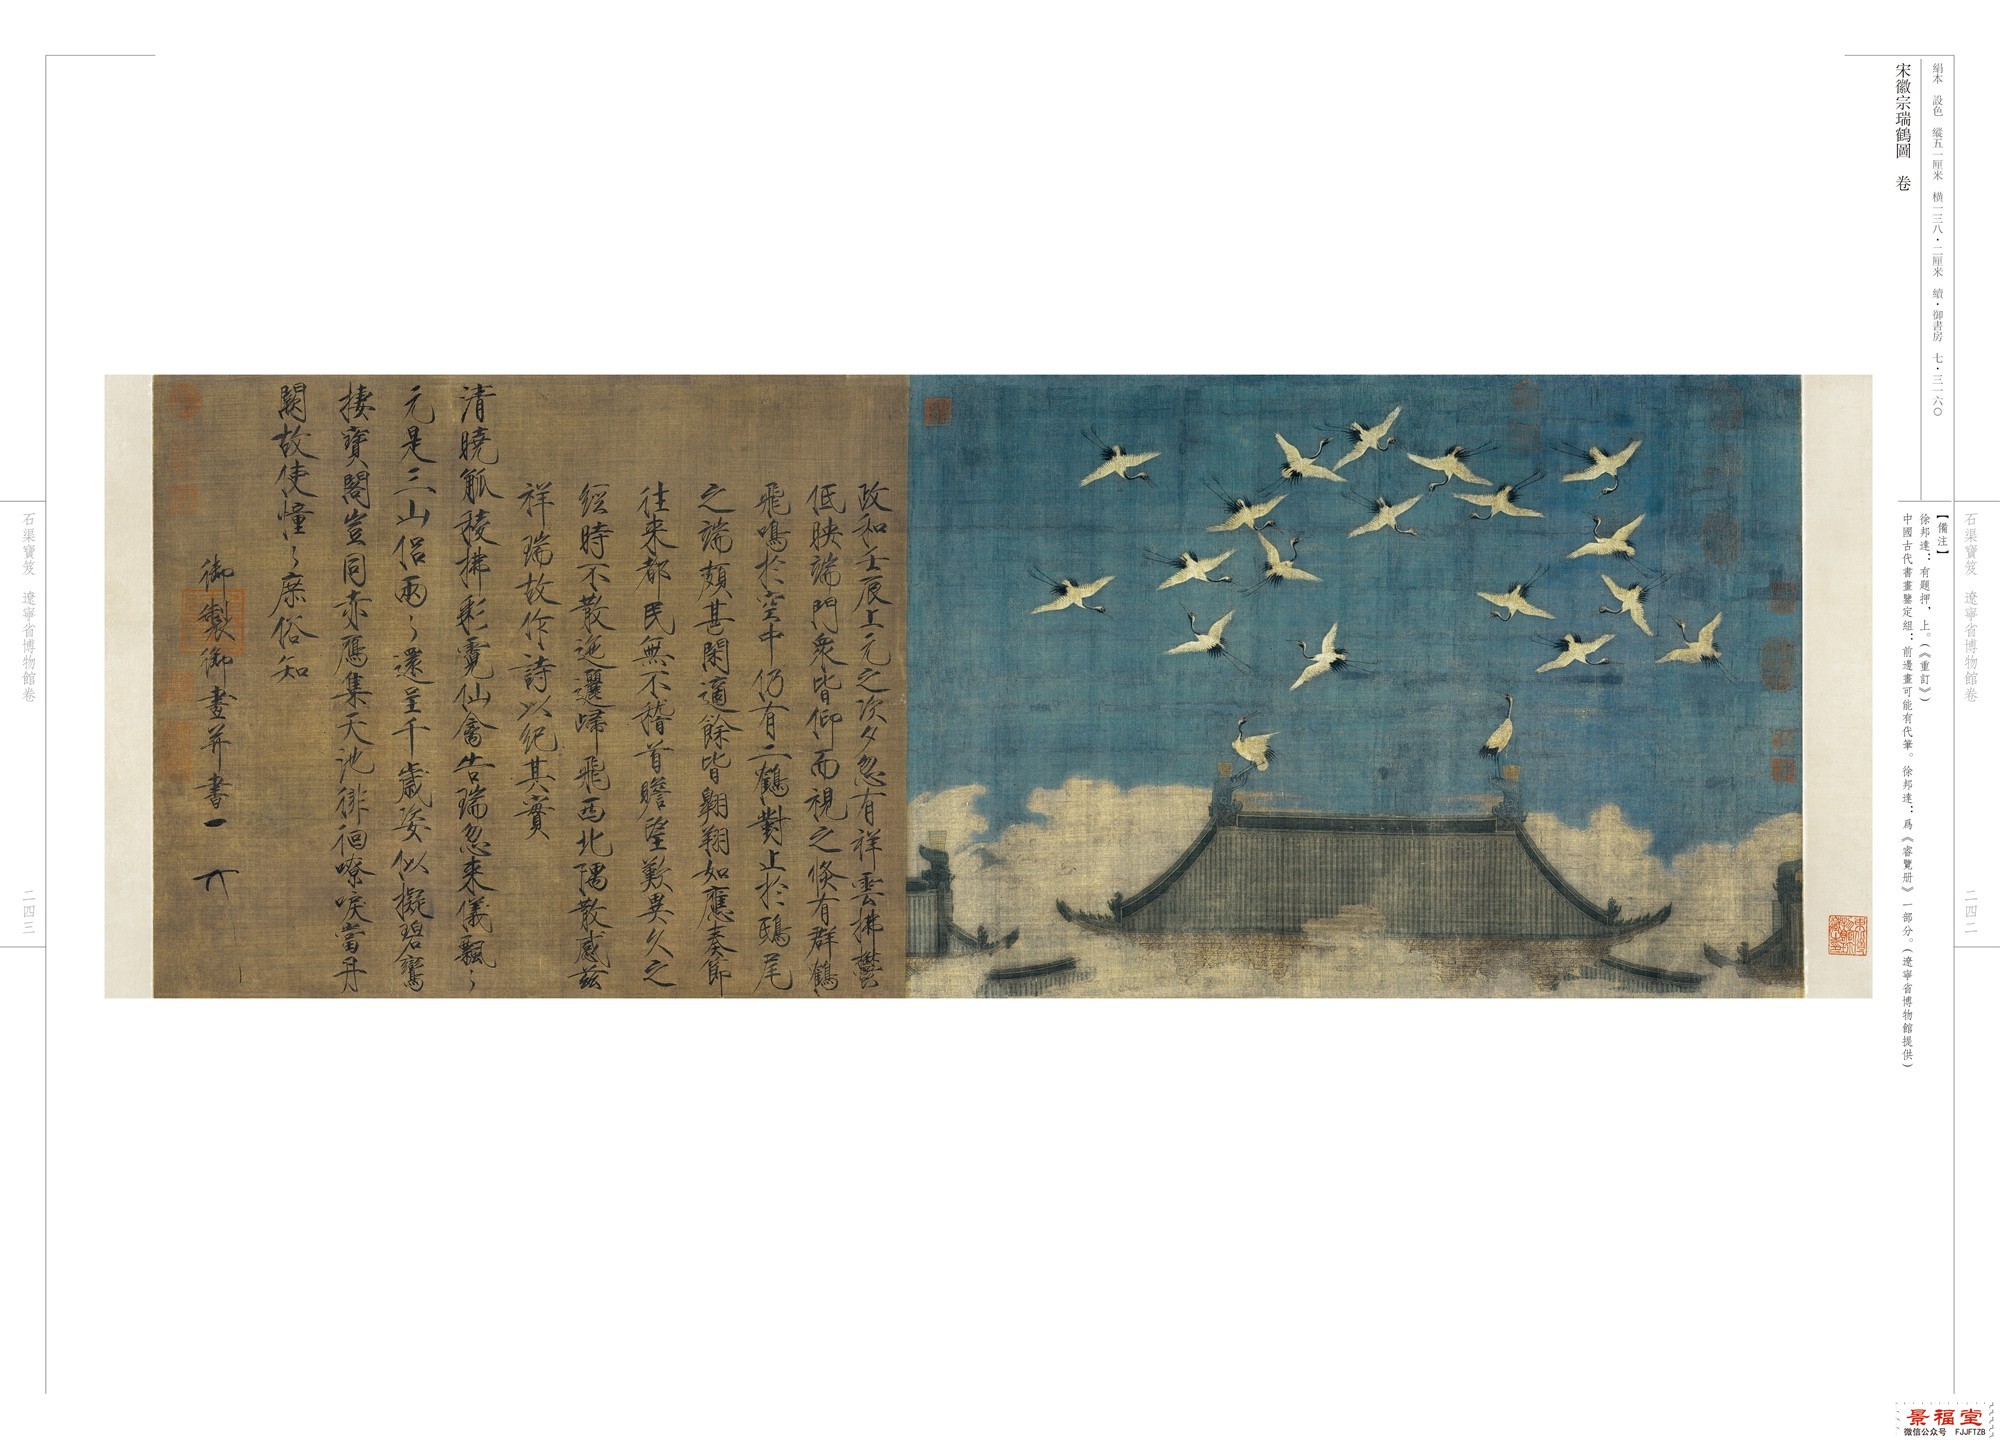 絹本　設色　縱五一厘米　橫一三八·二厘米　續·御書房　七·三一六〇
宋徽宗瑞鶴圖　卷
石渠寶笈　遼寧省博物館卷
二四二
【備注】
徐邦達：有題押，上。（《重訂》）
中國古代書畫鑒定組：前邊畫可能有代筆。徐邦達：爲《睿覽册》一部分。（遼寧省博物館提供）
政和壬辰上元之次夕忽有祥雲拂鬱
低映端門衆皆仰而視之倏有群鶴
飛鳴於空中仍有二鶴對止於鴟尾
之端頗甚閑適餘皆翱翔如應奏節
往来都民無不稽首瞻望歎異久之
經時不散迤邐歸飛西北隅散感兹
祥瑞故作詩以紀其實
清曉觚稜拂彩霓仙禽告瑞忽来儀飄〻
元是三山侣兩〻還呈千歲姿似擬碧鸞
棲寶閣豈同赤鴈集天池徘徊嘹唳當丹
闕故使憧〻庶俗知
御製御畫并書
石渠寶笈　遼寧省博物館卷
二四三
景福堂
微信公众号　FJJFTZB